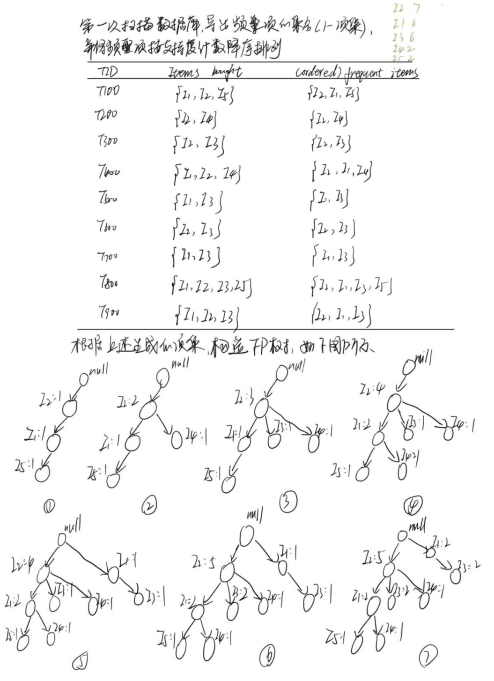 I2 7
I1 6
I3 6
I4 2
I5 2
第一次扫描数据库,导出频繁项的集合(1-项集),
并将频繁项按支持度计数降序排列
TID Items bought (ordered) frequent items
T100 {I1, I2, I5} {I2, I1, I5}
T200 {I2, I4} {I2, I4}
T300 {I2, I3} {I2, I3}
T400 {I1, I2, I4} {I2, I1, I4}
T500 {I1, I3} {I1, I3}
T600 {I2, I3} {I2, I3}
T700 {I1, I3} {I1, I3}
T800 {I1, I2, I3, I5} {I2, I1, I3, I5}
T900 {I1, I2, I3} {I2, I1, I3}
根据上述生成的项集,构造FP树,如下图所示、
null
I2:1
I1:1
I5:1
①
null
I2:2
I1:1 I4:1
I5:1
②
null
I2:3
I1:1 I3:1 I4:1
I5:1
③
null
I2:4
I1:2 I3:1 I4:1
I5:1 I4:1
④
null
I2:4 I1:1
I1:2 I3:1 I4:1 I3:1
I5:1 I4:1
⑤
null
I2:5 I1:1
I1:2 I3:2 I4:1 I3:1
I5:1 I4:1
⑥
null
I2:5 I1:2
I1:2 I3:2 I4:1 I3:2
I5:1 I4:1
⑦